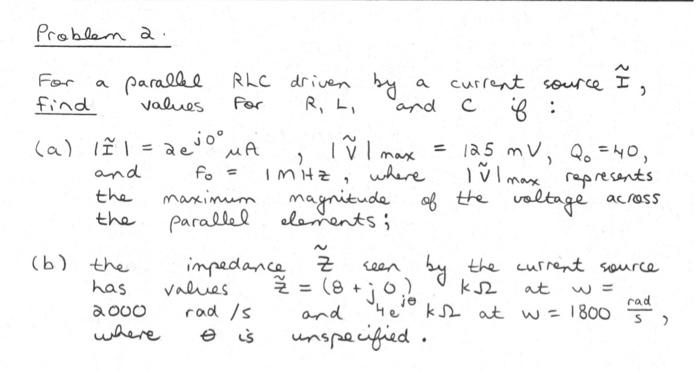 Problem 2.
For a parallel RLC driven by a current source Ĩ,
find values for R, L, and C if :
(a) |Ĩ| = 2e^{j0°} μA , |Ṽ|max = 125 mV, Q₀ = 40,
and f₀ = 1 MHz, where |Ṽ|max represents
the maximum magnitude of the voltage across
the parallel elements;
(b) the impedance Z̃ seen by the current source
has values Z̃ = (8 + j0) kΩ at w =
2000 rad/s and 4e^{jθ} kΩ at w = 1800 rad/s,
where θ is unspecified.